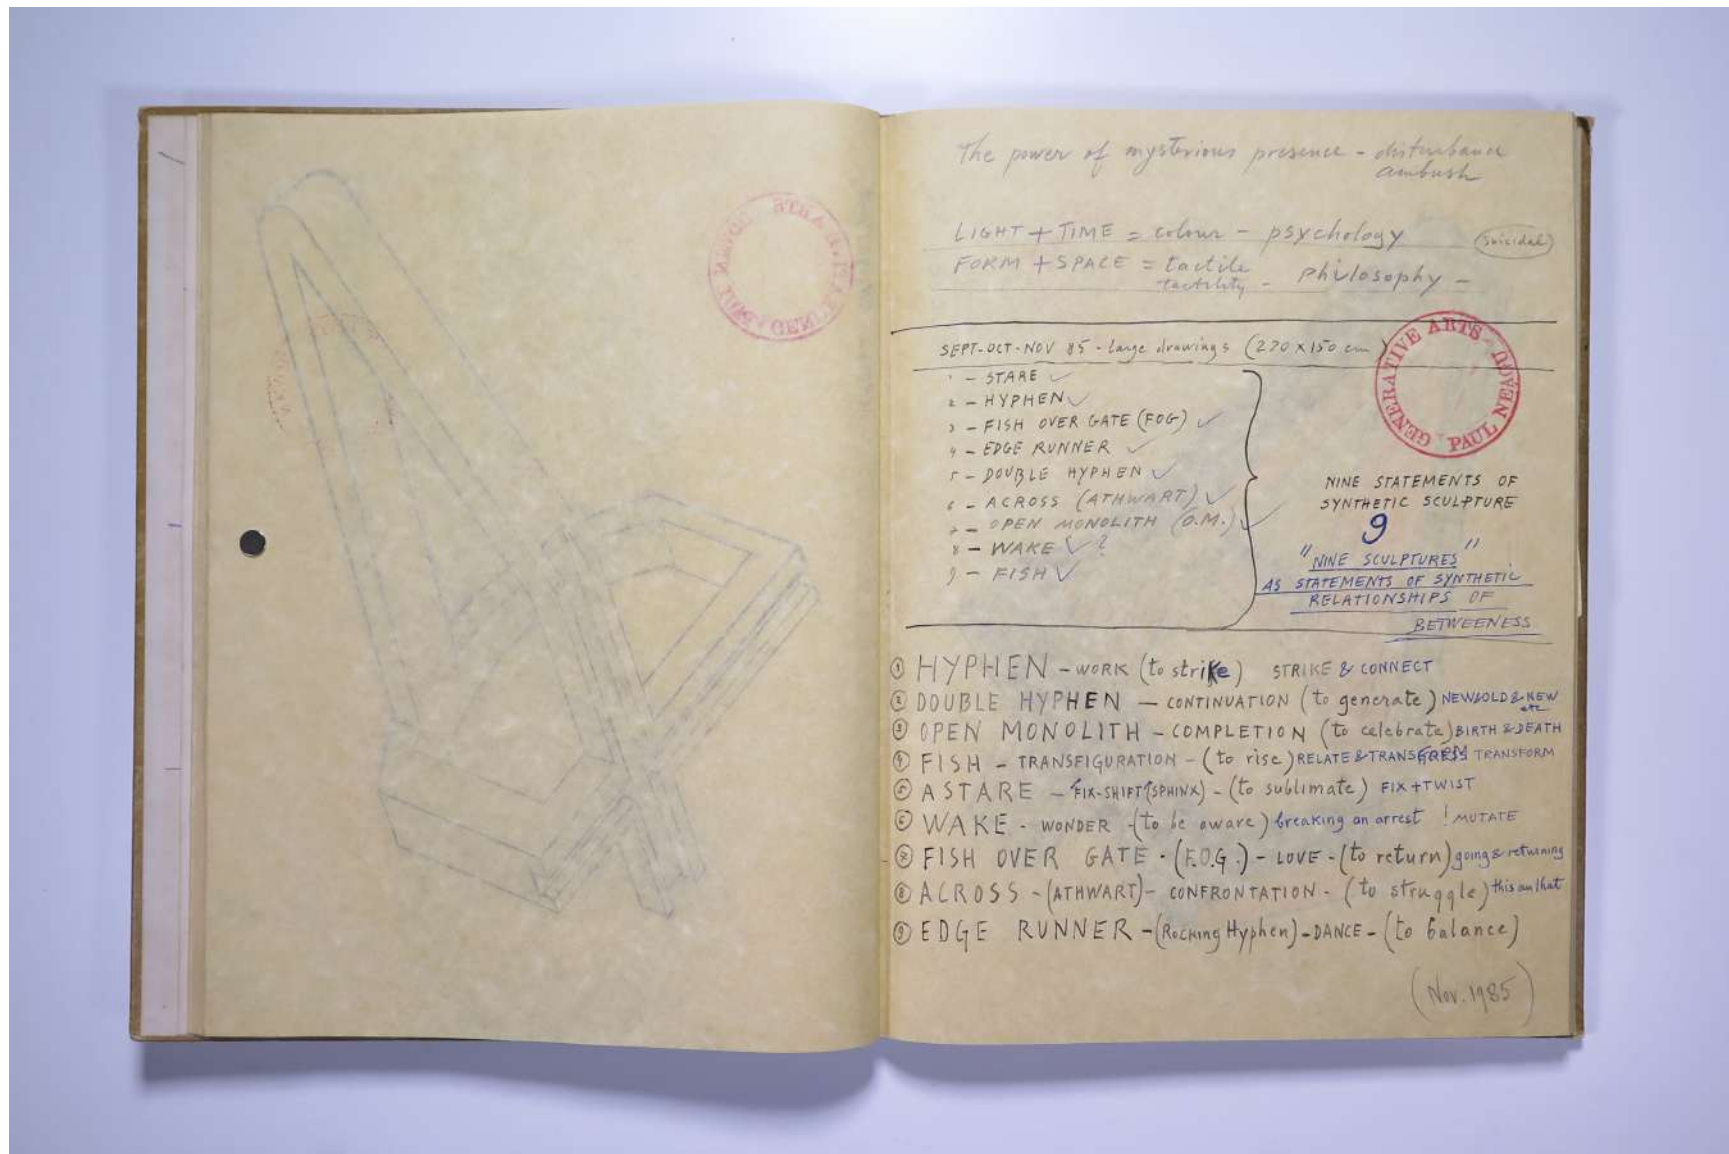 The power of mysterious presence - disturbance
ambush
LIGHT + TIME = colour - psychology (suicidal)
FORM + SPACE = tactile - philosophy -
tactility
SEPT-OCT-NOV 85 - Large drawings (270 x 150 cm)
1 - STARE ✓
2 - HYPHEN ✓
3 - FISH OVER GATE (FOG) ✓
4 - EDGE RUNNER ✓
5 - DOUBLE HYPHEN ✓
6 - ACROSS (ATHWART) ✓
7 - OPEN MONOLITH (O.M.) ✓
8 - WAKE ✓ ?
9 - FISH ✓
GENERATIVE ARTS PAUL NEAGU
NINE STATEMENTS OF
SYNTHETIC SCULPTURE
9
"NINE SCULPTURES"
AS STATEMENTS OF SYNTHETIC
RELATIONSHIPS OF
BETWEENESS
① HYPHEN - WORK (to strike) STRIKE & CONNECT
② DOUBLE HYPHEN - CONTINUATION (to generate) NEW&OLD&NEW
etc
③ OPEN MONOLITH - COMPLETION (to celebrate) BIRTH & DEATH
④ FISH - TRANSFIGURATION - (to rise) RELATE & TRANSGRESS TRANSFORM
⑤ A STARE - FIX-SHIFT (SPHINX) - (to sublimate) FIX + TWIST
⑥ WAKE - WONDER - (to be aware) breaking an arrest ! MUTATE
⑦ FISH OVER GATE - (F.O.G.) - LOVE - (to return) going & returning
⑧ ACROSS - (ATHWART) - CONFRONTATION - (to struggle) this on that
⑨ EDGE RUNNER - (Rocking Hyphen) - DANCE - (to balance)
(Nov. 1985)